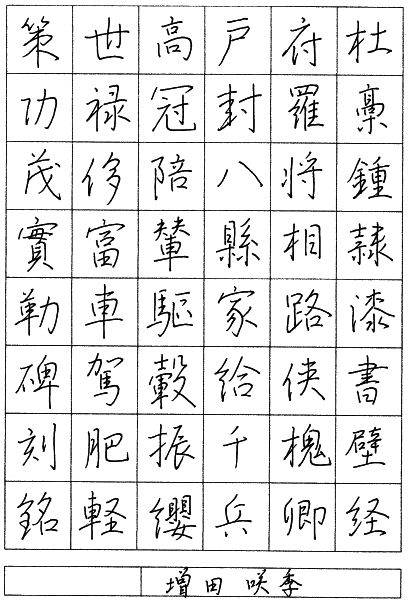 杜稾鍾隷漆書壁経
府羅将相路侠槐卿
戸封八縣家給千兵
高冠陪輦驅轂振纓
世禄侈富車駕肥軽
策功茂實勒碑刻銘
増田 咲季